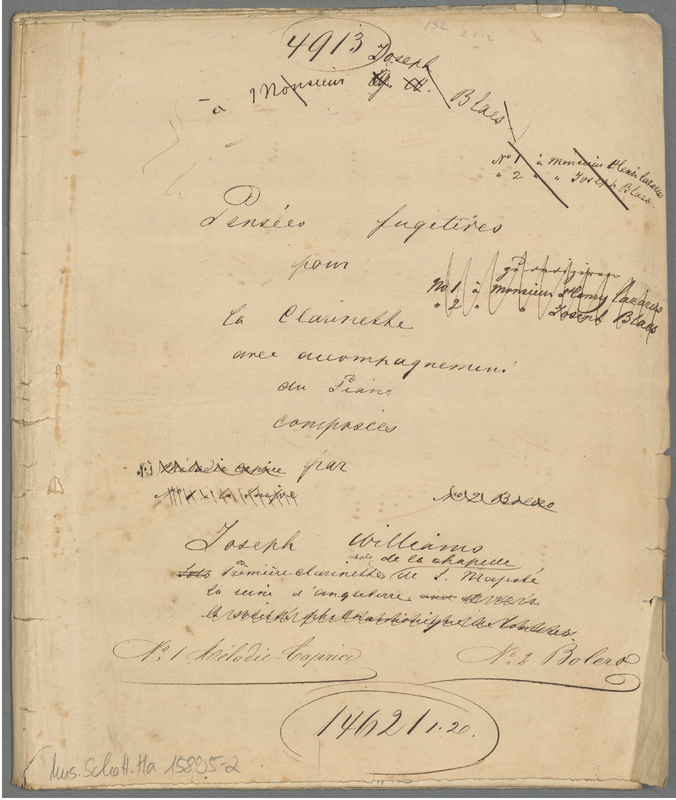 4913
Joseph
à Monsieur Blaes
No 1 à Monsieur Henri Lazarus
" 2 " " Joseph Blaes.
Pensées fugitives
pour
zu
No 1 à Monsieur Henry Lazarus
" 2 " " Joseph Blaes
La Clarinette
avec accompagnement
du Piano
composées
No 1 Mélodie Caprice par
No 2 Bolero
Joseph Williams
solo de la chapelle
Solo Première clarinette de S. Majesté
la reine d'Angleterre
No. 1 Mélodie-Caprice No. 2 Bolero
14621 1.20.
Mus. Schott. Ha 15895-2